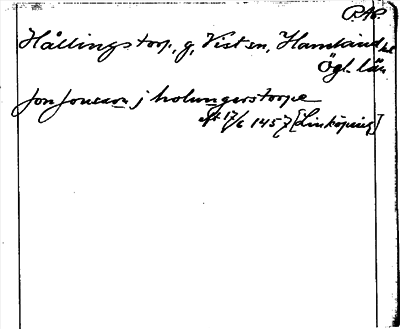 RAP.
Hållingstorp, g, Vist sn, Hanekinds hd
Ögl. län
Jon Jonsson j holungerstorpe
eft 17/6 1457 [Linköping]